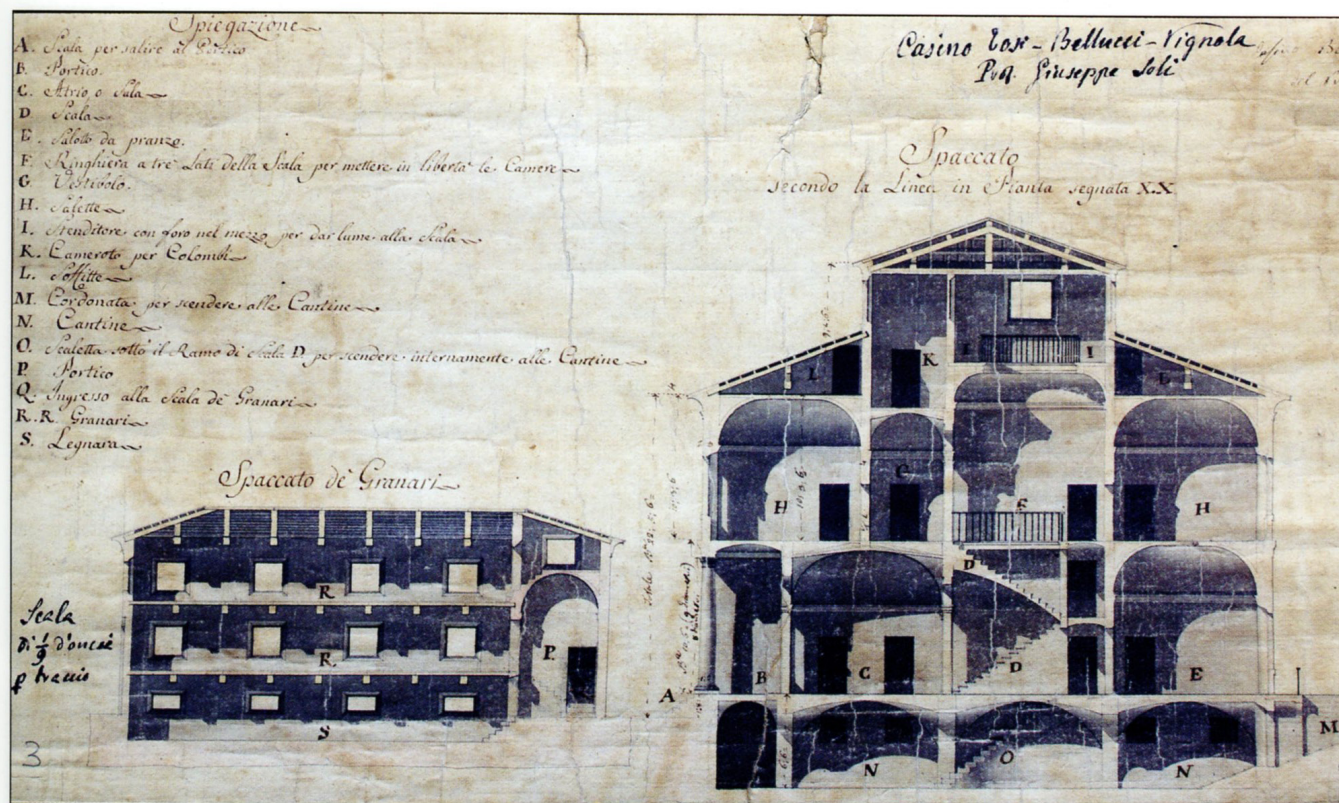 Spiegazione
A. Scala per salire al Portico
B. Portico.
C. Atrio, o Sala
D Scala
E. Salotto da pranzo.
F. Ringhiera a tre Lati della Scala per mettere in libertà le Camere
G. Vestibolo.
H. Salette
I. Stenditore con foro nel mezzo per dar lume alla Scala
K. Cameroto per Colombi
L. Soffitte
M. Cordonata per scendere alle Cantine
N. Cantine
O. Scaletta sotto il Ramo di Scala D per scendere internamente alle Cantine
P. Portico
Q. Ingresso alla Scala de Granari
R.R. Granari
S. Legnara
Casino Tosi - Bellucci - Vignola
Prof. Giuseppe Soli
Spaccato
secondo la Linea in Pianta segnata X.X
Spaccato de Granari
Scala
di 1/9 d'oncie
p braccio
R
R.
S
P.
3
K
I
I
L
L
H
G
F
H
D
A
B
C
D
E
M
N
O
N